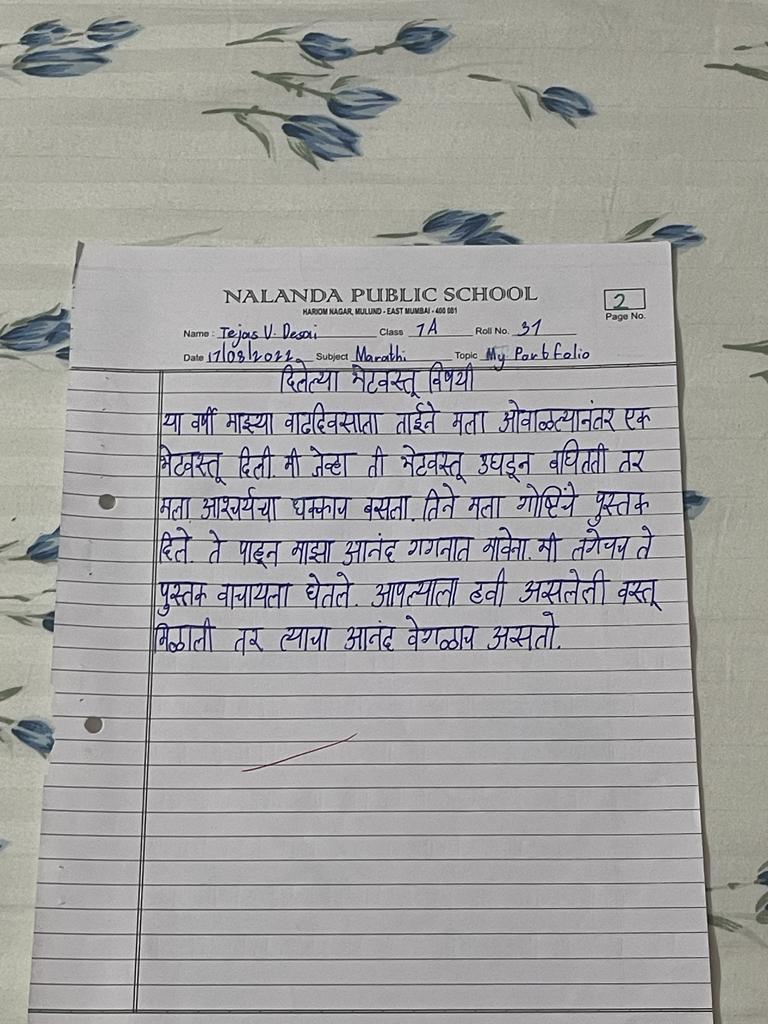 NALANDA PUBLIC SCHOOL
HARIOM NAGAR, MULUND - EAST MUMBAI - 400 081
2
Page No.
Name : Tejas V. Desai Class 7A Roll No. 31
Date 17/08/2022 Subject Marathi Topic My Portfolio
दिलेल्या भेटवस्तू विषयी
या वर्षी माझ्या वाढदिवसाला ताईने मला ओवाळल्यानंतर एक
भेटवस्तू दिली. मी जेव्हा ती भेटवस्तू उघडून बघितली तर
मला आश्चर्यचा धक्काच बसला. तिने मला गोष्टिंचे पुस्तक
दिले. ते पाहून माझा आनंद गगनात मावेना. मी लगेचच ते
पुस्तक वाचायला घेतले. आपल्याला हवी असलेली वस्तू
मिळाली तर त्याचा आनंद वेगळाच असतो.